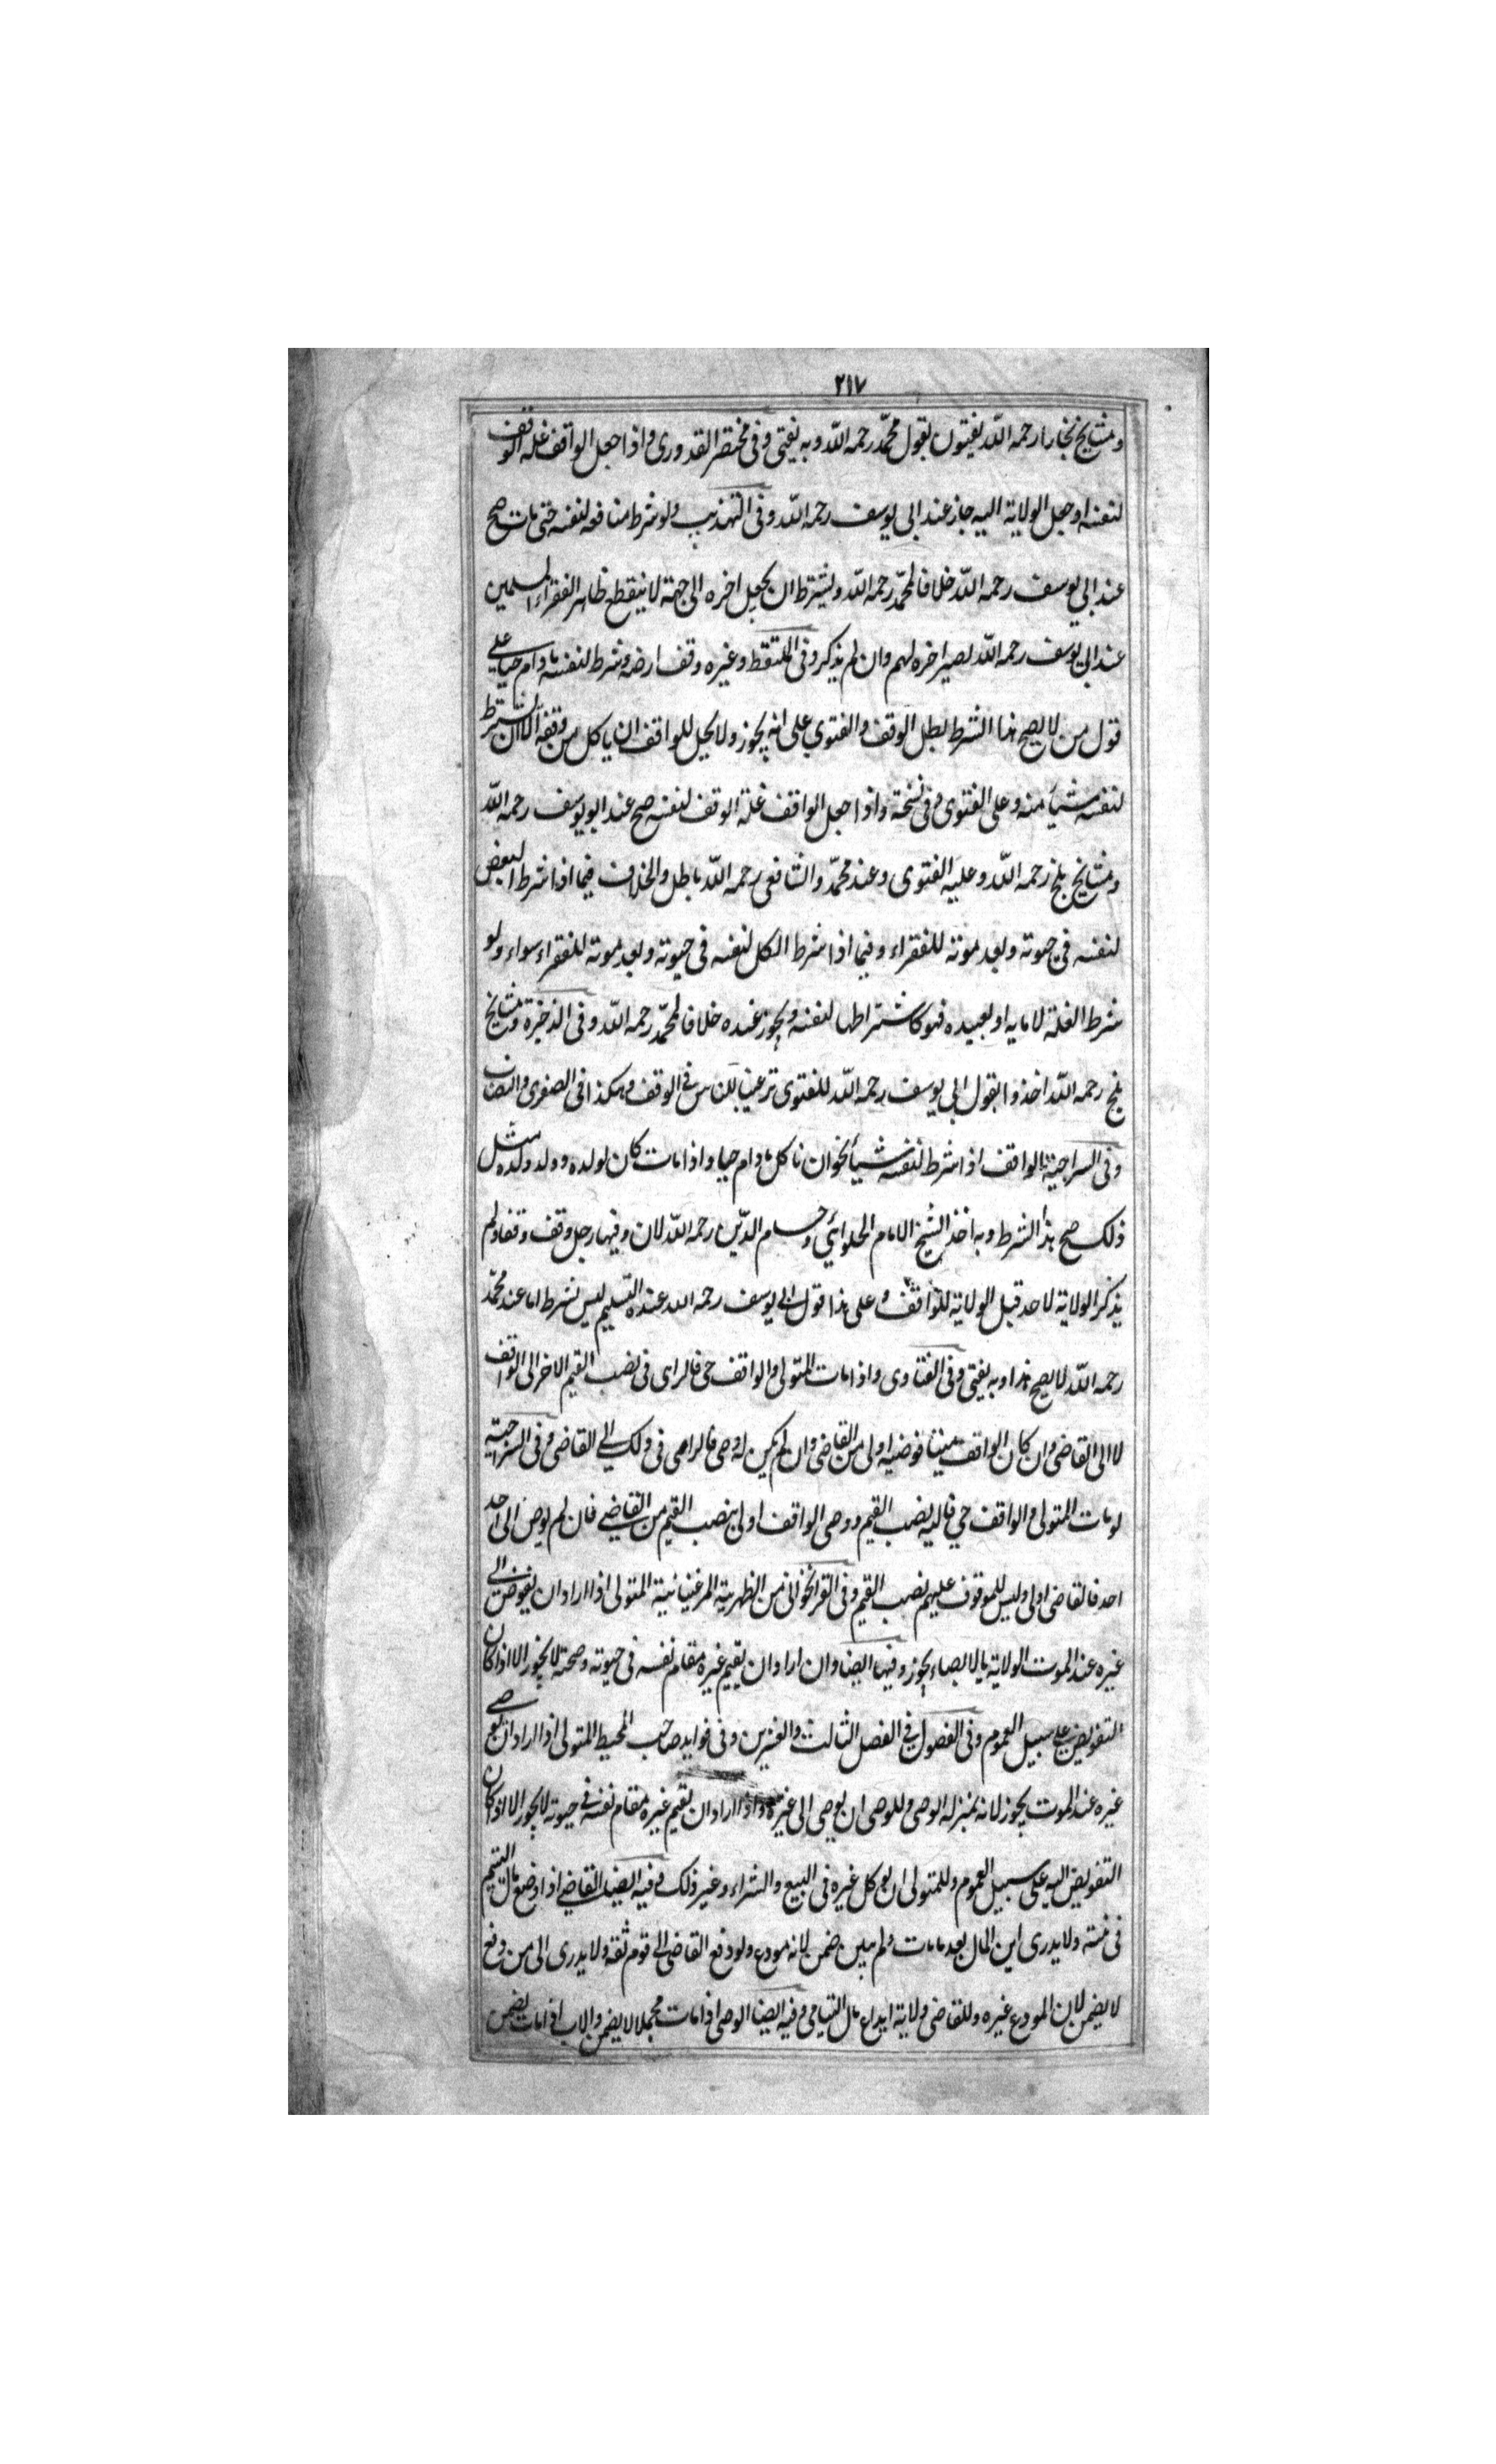 ٢١٧
ومشايخ بخارا رحمه الله يفتون بقول محمد رحمه الله وبه يفتى وفى مختصر القدورى واذا جعل الواقف غلة الوقف
لنفسه او جعل الولاية اليه جاز عند ابى يوسف رحمه الله وفى التهذيب ولو شرط منافعه لنفسه حتى مات صح
عند ابي يوسف رحمه الله خلافا لمحمد رحمه الله ويشترط ان يجعل اخره الى جهة لا ينقطع ظاهر الفقراء المسلمين
عند ابى يوسف رحمه الله يصير اخره لهم وان لم يذكر وفى الملتقط وغيره وقف ارضه وشرط لنفسه مادام حيا على
قول من لا يصح هذا الشرط بطل الوقف والفتوي على انه يجوز ولا يحل للواقف ان ياكل من وقفه الا ان يشترط
لنفسه شيأ منه وعلى الفتوى وفى نسخة واذا جعل الواقف غلة الوقف لنفسه صح عند ابو يوسف رحمه الله
ومشايخ بلخ رحمه الله وعليه الفتوى وعند محمد والشافعى رحمه الله باطل والخلاف فيما اذا شرط البعض
لنفسه في حيوته وبعد موته للفقراء وفيما اذا شرط الكل لنفسه فى حيوته وبعد موته للفقراء سواء ولو
شرط الغلة لامايه او لعبيده فهو كاشتراطها لنفسه ويجوز عنده خلافا لمحمد رحمه الله وفى الذخيرة ومشايخ
بلخ رحمه الله اخذوا بقول ابي يوسف رحمه الله للفتوى ترغيبا للناس في الوقف وهكذا فى الصغرى والنصاب
وفى السراجية الواقف اذا شرط لنفسه شيأ نحو ان ياكل مادام حيا واذا مات كان لولده وولد ولده مثل
ذلك صح هذا الشرط وبه اخذ الشيخ الامام الحلوائي وحسام الدين رحمه الله لان وفيها رجل وقف وقفا ولم
يذكر الولاية لاحد قبل الولاية للواقف وعلى هذا قول ابي يوسف رحمه الله عنده التسليم ليس بشرط اما عند محمد
رحمه الله لا يصح هذا وبه يفتى وفى الفتاوى واذا مات المتولى والواقف حى فالراى فى نصب القيم الاخر الى الواقف
لا الى القاضى وان كان الواقف ميتا فوصيه اولى من القاضى وان لم يكن له وصى فالراى فى ذلك الي القاضى وفى السراجية
لو مات المتولى والواقف حي فاليه نصب القيم ووصى الواقف اولى بنصب القيم من القاضي فان لم يوص الى احد
احد فالقاضى اولى وليس للموقوف عليهم نصب القيم وفى القراخوانى من الظهيرية المرغينانية المتولى اذا اراد ان يفوض الى
غيره عند الموت الولاية بالايصاء يجوز وفيها ايضا وان اراد ان يقيم غيره مقام نفسه فى حيوته وصحته لا يجوز الا اذا كان
التفويض على سبيل العموم وفى الفصول في الفصل الثالث والعشرين وفى فوايد صاحب المحيط المتولى اذا اراد ان يوصى
غيره عند الموت يجوز لانه بمنزلة الوصى وللوصى ان يوصى الى غيره واذا اراد ان يقيم غيره مقام نفسه في حيوته لا يجوز الا اذا كان
التفويض اليه على سبيل العموم وللمتولى ان يوكل غيره فى البيع والشراء وغير ذلك وفيه ايضا القاضي اذا وضع مال اليتيم
فى بيته ولا يدرى اين المال بعد ما مات ولم يبين ضمن لانه مودع ولو دفع القاضى الى قوم ثقة ولا يدرى الى من دفع
لا يضمن لان المودع غيره وللقاضى ولاية ايداع مال اليتامى وفيه ايضا الوصى اذا مات مجهلا لا يضمن والاب اذا مات يضمن